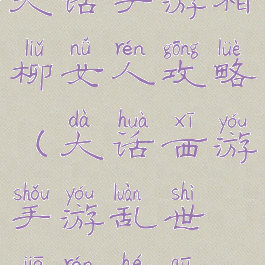 大话手游相
liǔ nǚ rén gōng luè
柳女人攻略
dà huà xī yóu
（大话西游
shǒu yóu luàn shì
手游乱世
rén hé